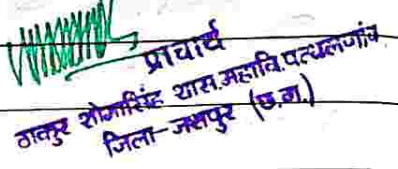 प्राचार्य
ठाकुर शोभासिंह शास. महावि. पत्थलगांव
जिला-जशपुर (छ.ग.)